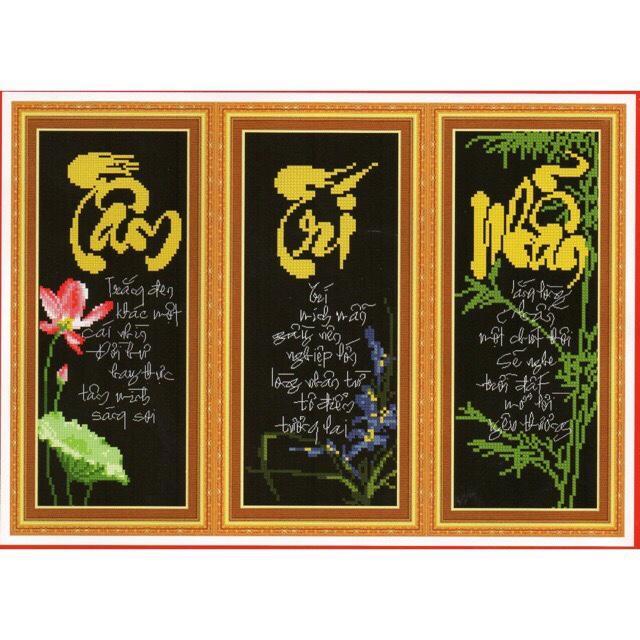 Tâm
Trắng đen
khác một
cái nhìn
Đời hư
hay thực
tâm mình
sáng soi
Trí
Trí
minh mẫn
gây nên
nghiệp lớn
lòng nhân từ
tô điểm
tương lai
Nhẫn
lắng lòng
nhẫn
một chút thôi
Sẽ nghe
trời đất
mở lời
yêu thương